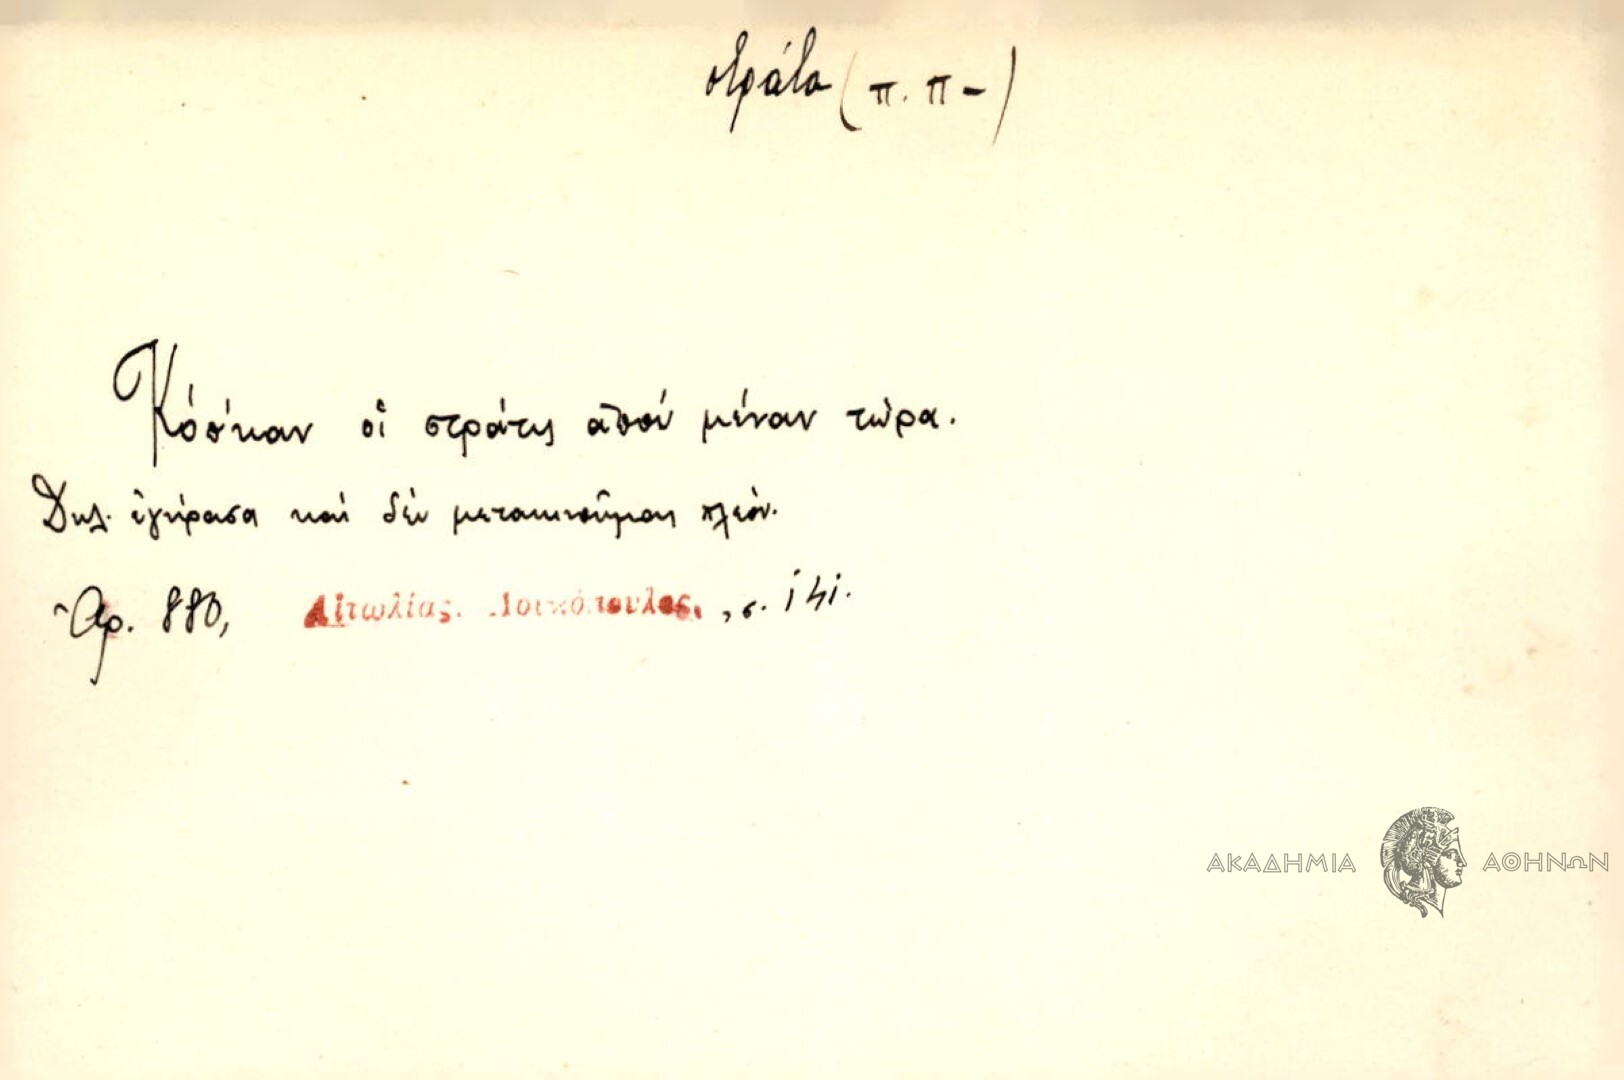 στράτα (π. π-)
Κόσ'καν οἱ στράτις ἀποὺ μέναν τώρα.
Δηλ. ἐγήρασα καὶ δὲν μετακινοῦμαι πλέον.
Ἀρ. 880, Αἰτωλίας. Λουκόπουλος, , σ. 141.
ΑΚΑΔΗΜΙΑ ΑΘΗΝΩΝ